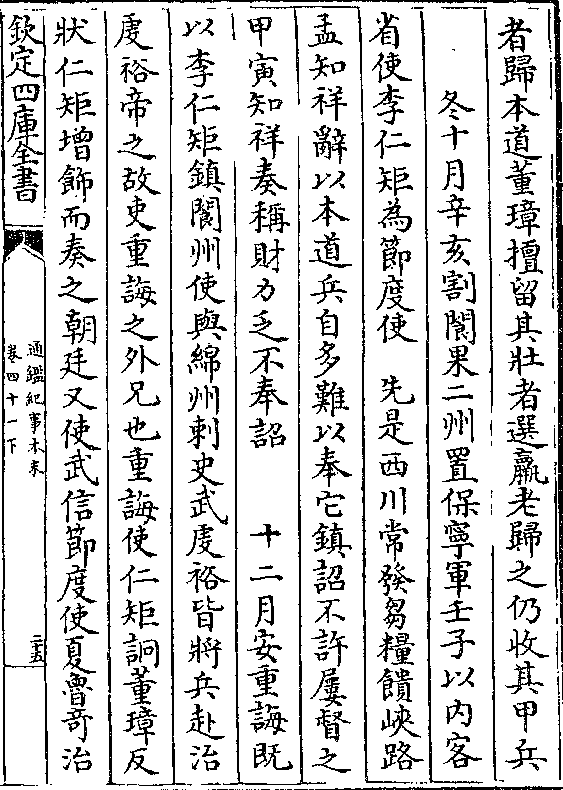 者歸本道董璋擅留其壯者選羸老歸之仍收其甲兵
冬十月辛亥割閬果二州置保寧軍壬子以内客
省使李仁矩為節度使　先是西川常發芻糧饋峽路
孟知祥辭以本道兵自多難以奉它鎮詔不許屢督之
甲寅知祥奏稱財力乏不奉詔　十二月安重誨既
以李仁矩鎮閬州使與綿州刺史武虔裕皆將兵赴治
虔裕帝之故吏重誨之外兄也重誨使仁矩詗董璋反
狀仁矩增飾而奏之朝廷又使武信節度使夏魯奇治
欽定四庫全書
通鑑紀事本末
卷四十一下
二十五